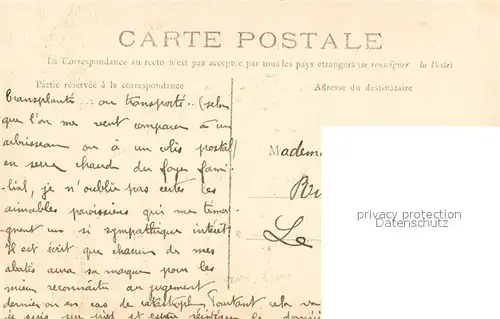 CARTE POSTALE
La Correspondance au recto n'est pas acceptée par tous les pays étrangers (se renseigner à la Poste)
Partie réservée à la correspondance
Adresse du destinataire
Transplanté - ou transporté - (selon
que l'on me veut comparer à un
arbrisseau ou à un colis postal)
en serre chaude du foyer fami-
lial, je n'oublie pas certes les
aimables paroissiens qui me témoi-
gnent un si sympathique intérêt.
Il est écrit que chacun de mes
abatis aura sa marque pour les
mieux reconnaître au jugement
dernier ou en cas de catastrophe. Pourtant cela va
je suis sur pied et
Madem
Ru
Le
privacy protection
Datenschutz